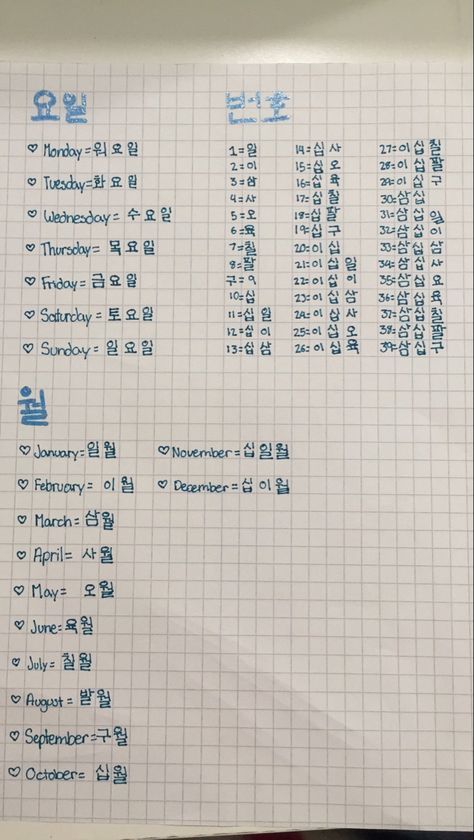 요일
♡ Monday=워요일
♡ Tuesday=화요일
♡ Wednesday= 수요일
♡ Thursday= 목요일
♡ Friday= 금요일
♡ Saturday= 토요일
♡ Sunday= 일요일
번호
1=월
2=이
3=삼
4=사
5=오
6=육
7=칠
8=팔
구=9
10=십
11=십일
12=십이
13=십삼
14=십사
15=십오
16=십육
17=십칠
18=십팔
19=십구
20=이십
21=이십일
22=이십이
23=이십삼
24=이십사
25=이십오
26=이십육
27=이십칠
28=이십팔
29=이십구
30=삼십
31=삼십일
32=삼십이
33=삼십삼
34=삼십사
35=삼십요
36=삼십육
37=삼십칠
38=삼십팔
39=삼십구
월
♡ January=일월
♡ February= 이월
♡ March= 삼월
♡ April= 사월
♡ May= 오월
♡ June=육월
♡ July= 칠월
♡ August= 발월
♡ September=구월
♡ October= 십월
♡ November=십일월
♡ December=십이월